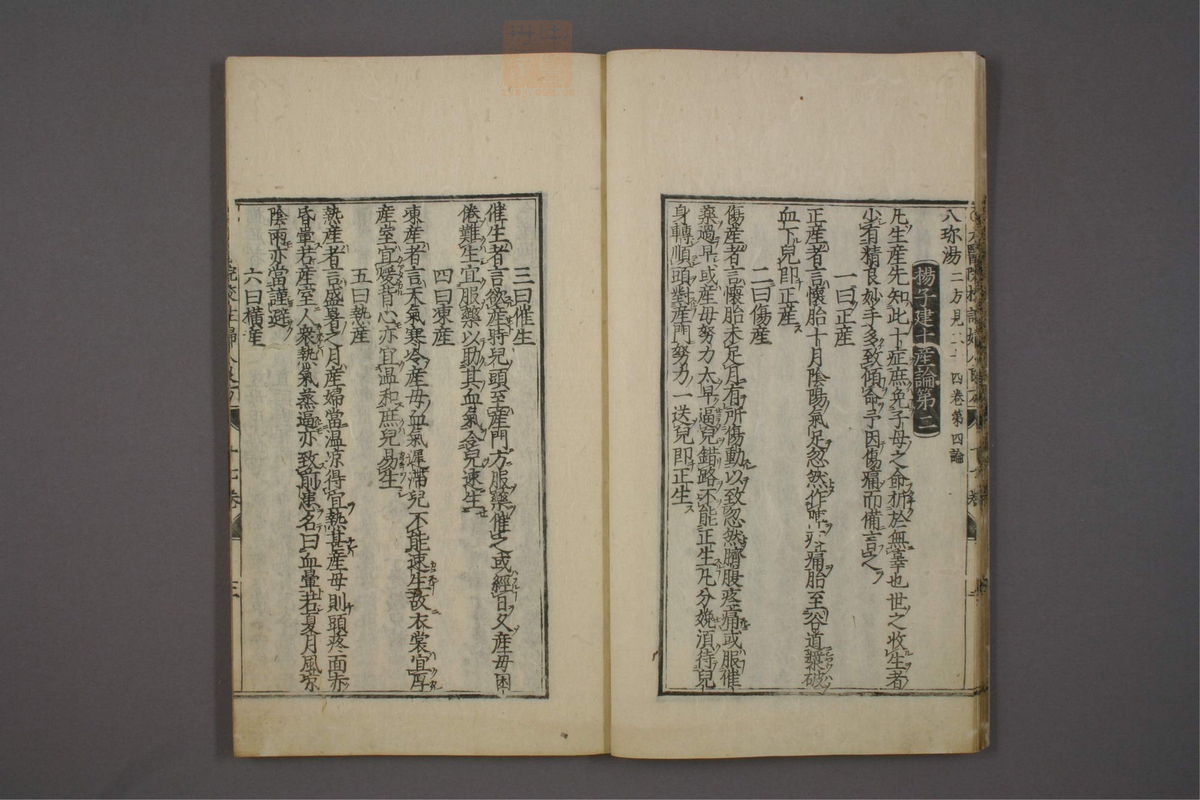 八珎湯 二方見二十四卷第四論
楊子建十産論第二
凢生産先知此十症庶免子母之命折於無辜也世之收生者
少有精良妙手多致傾命予因傷痛而備言之
一曰正産
正産者言懷胎十月陰陽氣足忽然作疼痛胎至谷道漿破
血下兒即正産
二曰傷産
傷産者言懷胎未足月有所傷動以致忽然臍腹疼痛或服催
藥過早或産母努力太早逼兒錯路不能正生凢分娩湏待兒
身轉順頭對産門努力一送兒即正生
三曰催生
催生者言欲産時兒頭至産門方服藥催之或經日久産母困
倦難生宜服藥以助其血氣令兒速生
四曰凍産
凍産者言天氣寒冷産母血氣遲滞兒不能速生故衣裳宜厚
産室宜煖背心亦宜温和庶兒易生
五曰熱産
熱産者言盛暑之月産婦當温凉得宜熱甚産母則頭疼面赤
昏暈若産室人衆熱氣蒸逼亦致前患名曰血暈若夏月風凉
陰雨亦當謹避
六曰橫産